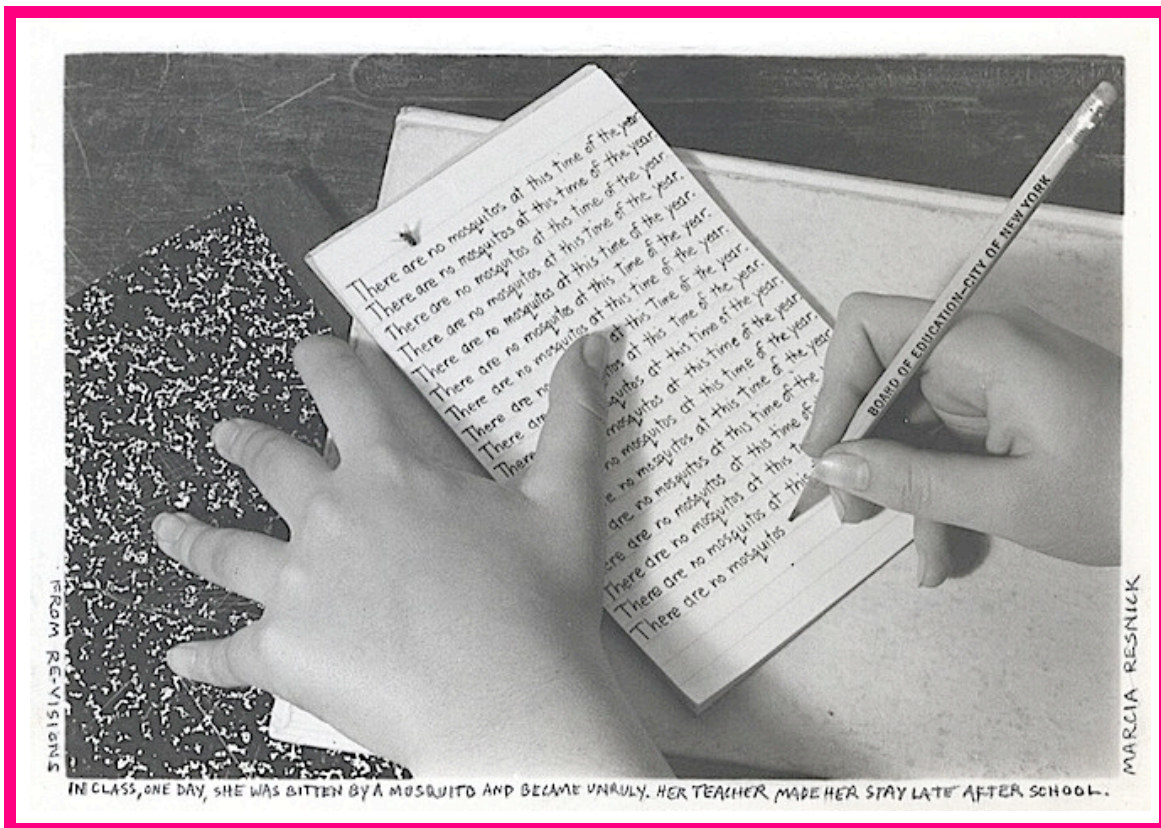 There are no mosquitos at this time of the year.
There are no mosquitos at this time of the year.
There are no mosquitos at this time of the year.
There are no mosquitos at this time of the year.
There are no mosquitos at this time of the year.
There are no mosquitos at this time of the year.
There are no mosquitos at this time of the year.
There are no at this time of the year.
There are at this time of the year.
There at this time of the year.
mosquitos at this time of the year.
no mosquitos at this time of the year.
no mosquitos at this time of the year
are no mosquitos at this time of the
are no mosquitos at this time of
There are no mosquitos at this
There are no mosquitos at this
There are no mosquitos
BOARD OF EDUCATION-CITY OF NEW YORK
FROM RE-VISIONS
MARCIA RESNICK
IN CLASS, ONE DAY, SHE WAS BITTEN BY A MOSQUITO AND BECAME UNRULY. HER TEACHER MADE HER STAY LATE AFTER SCHOOL.